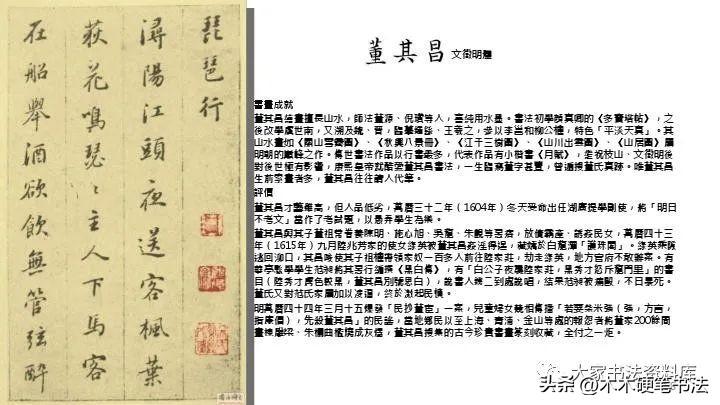 琵琶行
潯陽江頭夜送客楓葉
荻花鳴瑟〻主人下馬客
在船舉酒欲飲無管弦醉
董其昌 文徵明體
書畫成就
董其昌繪畫擅長山水,師法董源、倪瓚等人,喜純用水墨。書法初學顏真卿的《多寶塔帖》,之
後改學虞世南,又溯及魏、晉,臨摹鍾繇、王羲之,參以李邕和柳公權,特色「平淡天真」。其
山水畫如《關山雪霽圖》、《秋興八景冊》、《江干三樹圖》、《山川出雲圖》、《山居圖》屬
明朝的巔峰之作。傳世書法作品以行書最多,代表作品有小楷書《月賦》,並祝枝山、文徵明後
對後世極有影響,康熙皇帝就酷愛董其昌書法,一生臨寫董字甚豐,曾遍搜董氏真跡。唯董其昌
生前索畫者多,董其昌往往請人代筆。
評價
董其昌才藝雖高,但人品低劣,萬曆三十二年(1604年)冬天受命出任湖廣提學副使,將「明日
不考文」當作了考試題,以愚弄學生為樂。
董其昌與其子董祖常眷養陳明、施心旭、吳龍、朱觀等惡痞,放債霸產、誘姦民女,萬曆四十三
年(1615年)九月陸兆芳家的使女綠英被董其昌姦淫得逞,藏嬌於白龍潭「護珠閣」。綠英乘隙
逃回泖口,其昌唆使其子祖權帶領家奴一百多人前往陸家莊,劫走綠英,地方官府不敢辦案。有
華亭監學學生范昶將其惡行編撰《黑白傳》,有「白公子夜襲陸家莊,黑秀才怒斥龍門里」的書
目(陸秀才膚色較黑,董其昌別號思白),說書人錢二到處說唱,結果范昶被痛毆,不日暴死。
董氏又對范氏家屬加以凌逼,終於激起民憤。
明萬曆四十四年三月十五爆發「民抄董宦」一案,兒童婦女競相傳播「若要柴米強(強,方言,
指廉價),先殺董其昌」的民謠,當地鄉民以至上海、青浦、金山等處的報怨者將董家200餘間
畫棟雕梁、朱欄曲檻燒成灰燼,董其昌搜集的古今珍貴書畫篆刻收藏,全付之一炬。
大家书法资料库
头条@木木硬笔书法